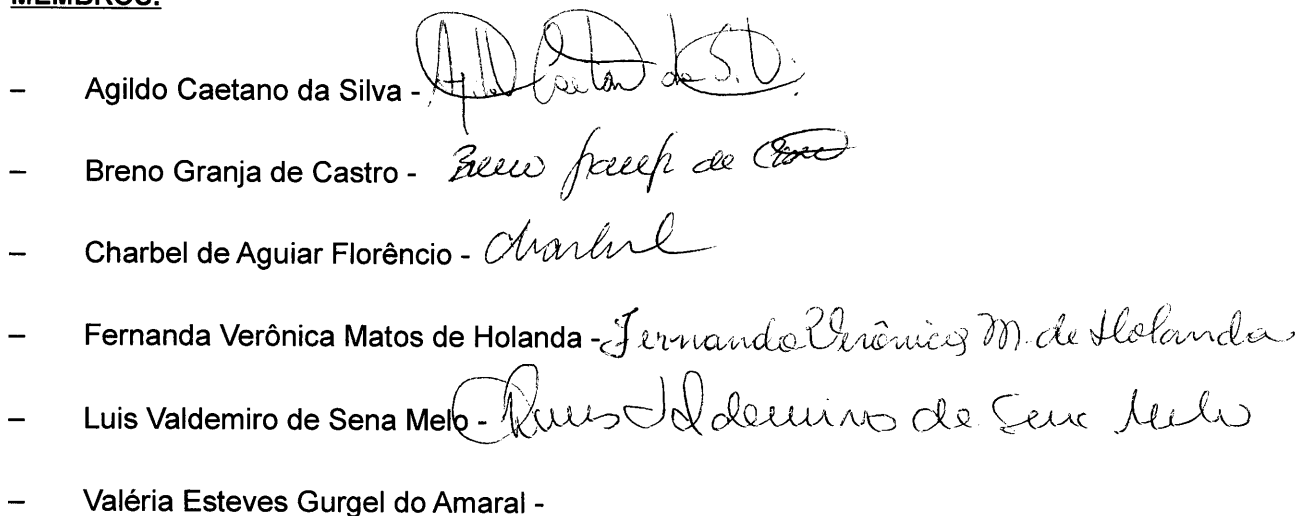 MEMBROS:
– Agildo Caetano da Silva - Agildo Caetano da S.
– Breno Granja de Castro - Breno Granja de Castro
– Charbel de Aguiar Florêncio - Charbel
– Fernanda Verônica Matos de Holanda - Fernanda Verônica M. de Holanda
– Luis Valdemiro de Sena Melo - Luis Valdemiro de Sena Melo
– Valéria Esteves Gurgel do Amaral -